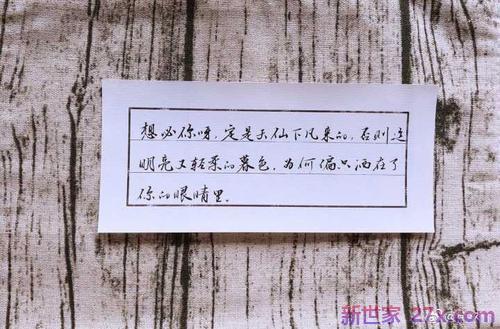 想必你呀，定是天仙下凡来的，否则这
明亮又轻柔的暮色，为何偏只洒在了
你的眼睛里。
新世家 27x.com